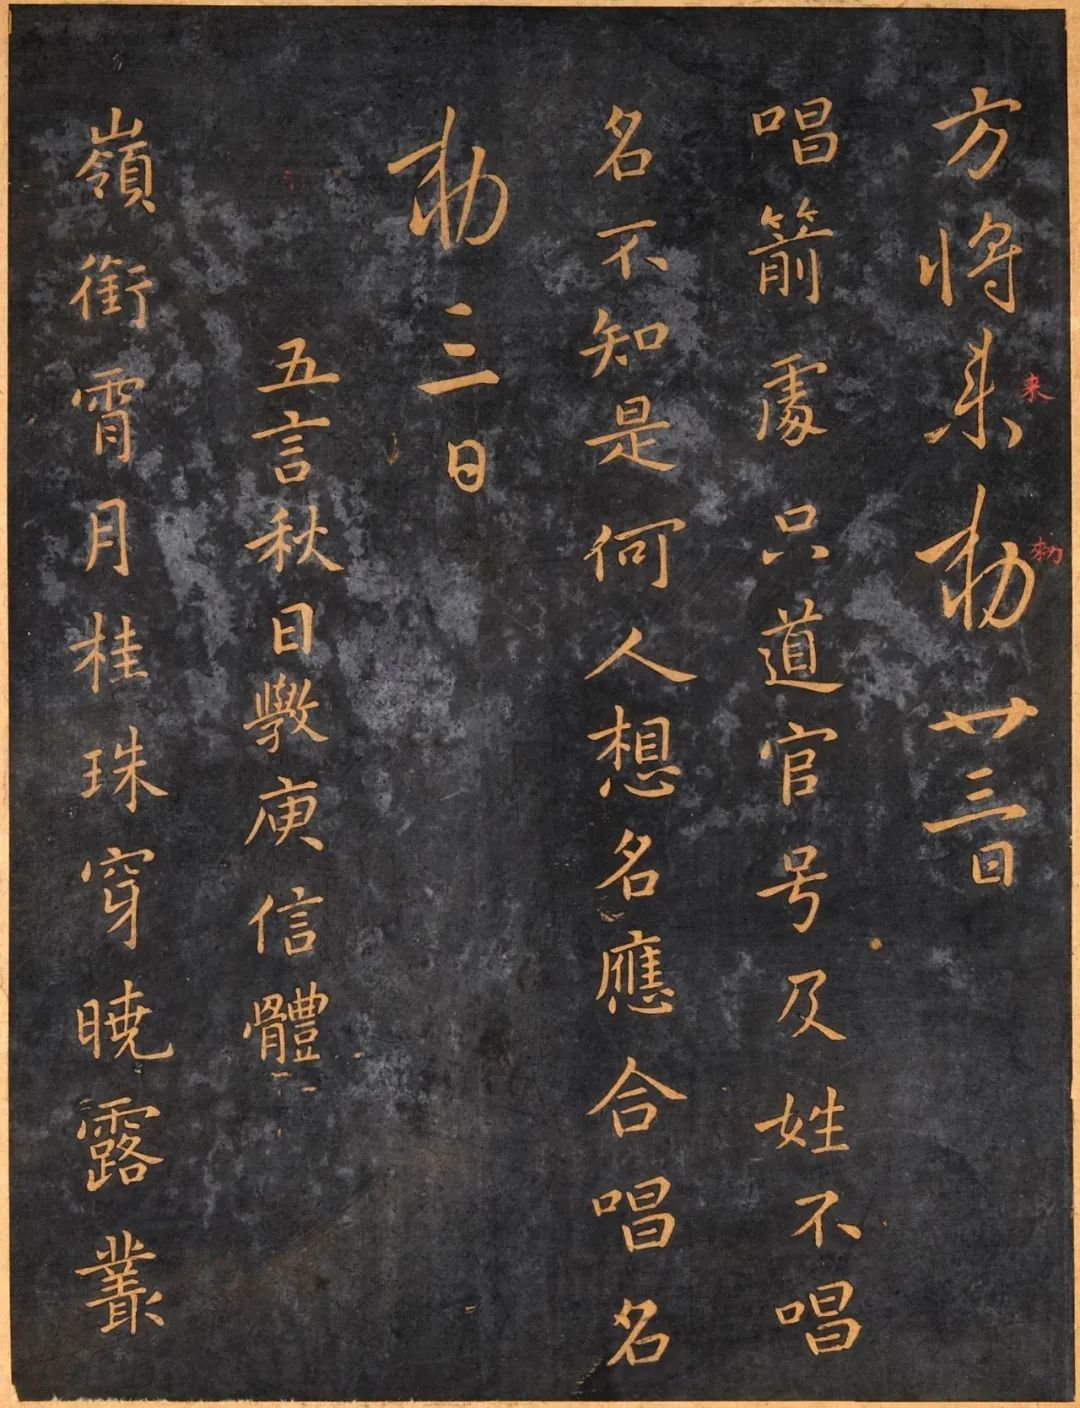 方将来勅廿三日
来
勅
唱箭處只道官号及姓不唱
名不知是何人想名應合唱名
勅三日
五言秋日斆庾信體
嶺銜霄月桂珠穿曉露叢